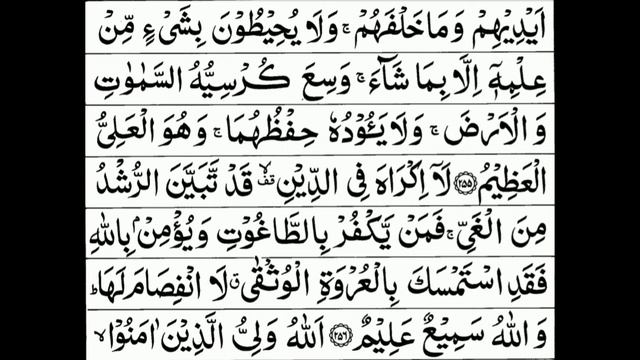 اَيْدِيْهِمْ وَمَا خَلْفَهُمْ ۚ وَلَا يُحِيْطُوْنَ بِشَيْءٍ مِّنْ
عِلْمِهٖٓ اِلَّا بِمَا شَآءَ ۚ وَسِعَ كُرْسِيُّهُ السَّمٰوٰتِ
وَالْاَرْضَ ۚ وَلَا يَـُٔوْدُهٗ حِفْظُهُمَا ۚ وَهُوَ الْعَلِيُّ
الْعَظِيْمُ ﴿۲۵۵﴾ لَآ اِكْرَاهَ فِي الدِّيْنِ ۙقف قَدْ تَّبَيَّنَ الرُّشْدُ
مِنَ الْغَيِّ ۚ فَمَنْ يَّكْفُرْ بِالطَّاغُوْتِ وَيُؤْمِنْۢ بِاللّٰهِ
فَقَدِ اسْتَمْسَكَ بِالْعُرْوَةِ الْوُثْقٰى ۗ لَا انْفِصَامَ لَهَا ؕ
وَاللّٰهُ سَمِيْعٌ عَلِيْمٌ ﴿۲۵۶﴾ اَللّٰهُ وَلِيُّ الَّذِيْنَ اٰمَنُوْا ۙ